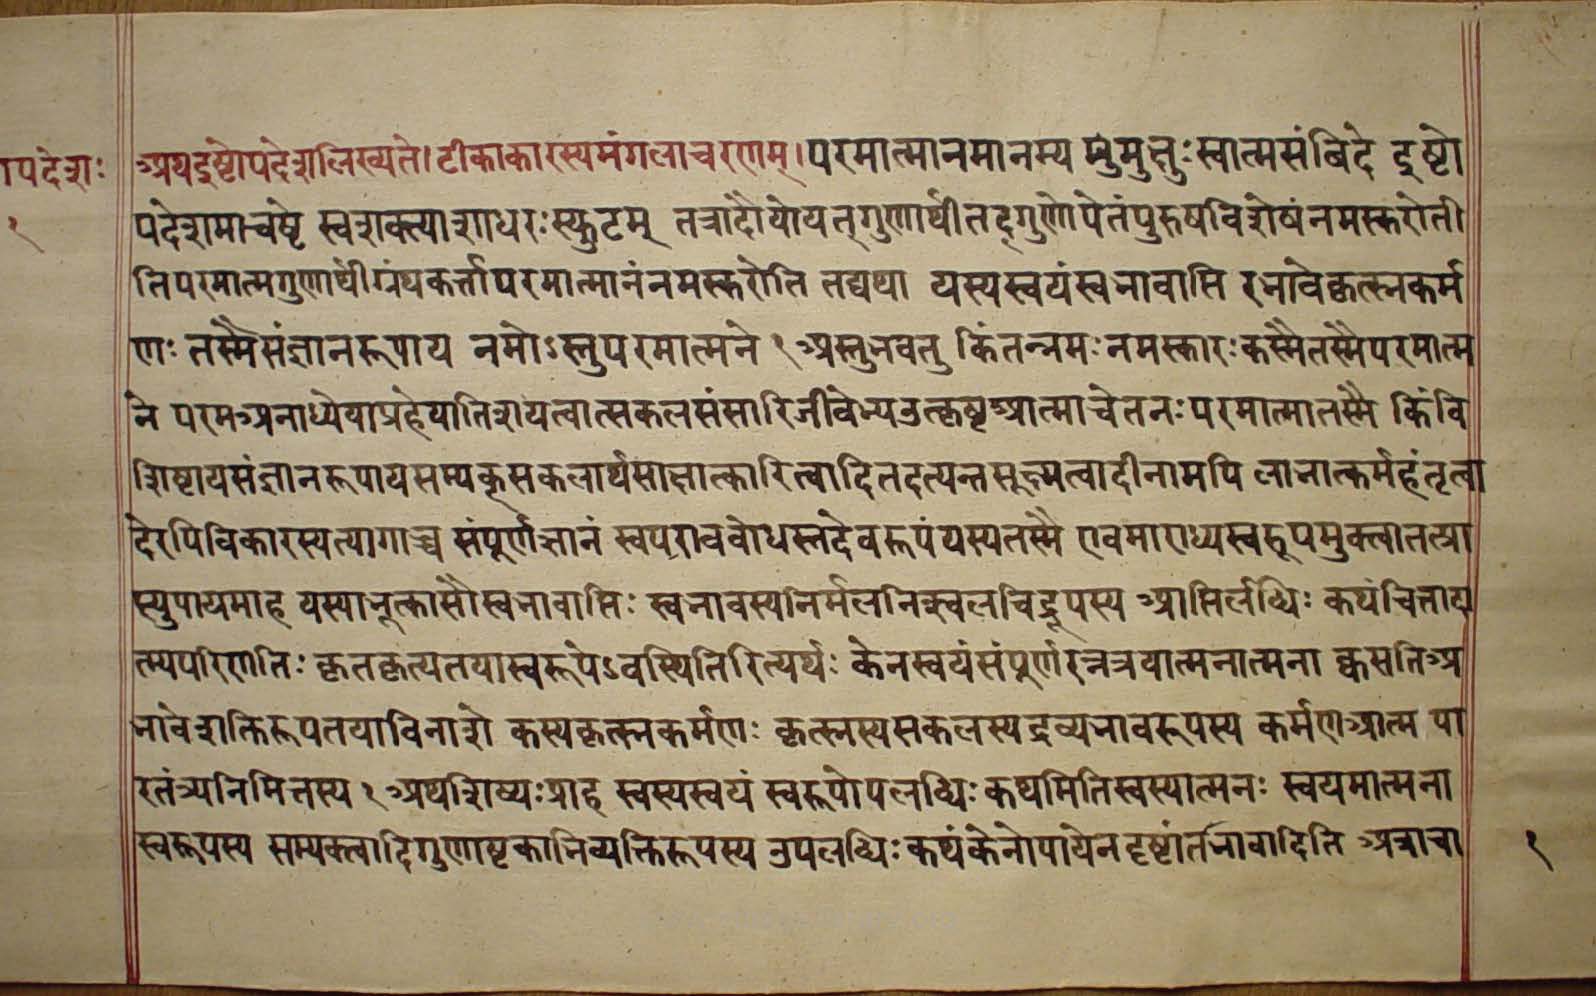 ापदेशः
१
अथइष्टोपदेशलिख्यते। टीकाकारस्यमंगलाचरणम्। परमात्मानमानम्य मुमुक्षुः स्वात्मसंविदे इष्टो
पदेशमाचष्टे स्वशक्त्याशाधरः स्फुटम् तत्रादौयोयत्गुणार्थीतद्गुणोपेतंपुरुषविशेषंनमस्करोती
तिपरमात्मगुणार्थीग्रंथकर्त्तापरमात्मानंनमस्करोति तद्यथा यस्यस्वयंस्वभावाप्ति रभावेकृत्स्नकर्म
णः तस्मैसंज्ञानरूपाय नमोऽस्तुपरमात्मने १ अस्तुभवतु किंतन्नमः नमस्कारः कस्मैतस्मैपरमात्म
ने परमअनाध्येयाप्रहेयातिशयत्वात्सकलसंसारिजीवेभ्यउत्कृष्टआत्माचेतनः परमात्मातस्मै किंवि
शिष्टायसंज्ञानरूपायसम्यक्सकलार्थसाक्षात्कारित्वादितदत्यन्तसूक्ष्मत्वादीनामपि लाभात्कर्महंतृत्वा
देरपिविकारस्यत्यागाच्च संपूर्णज्ञानं स्वपरावबोधस्तदेवरूपंयस्यतस्मै एवमाराध्यस्वरूपमुक्त्वातत्प्रा
प्त्युपायमाह यस्याभूत्कासौस्वभावाप्तिः स्वभावस्यनिर्मलनिश्चलचिद्रूपस्य आप्तिर्लब्धिः कथंचित्तादा
त्म्यपरिणतिः कृतकृत्यतयास्वरूपेऽवस्थितिरित्यर्थः केनस्वयंसंपूर्णरत्नत्रयात्मनात्मना क्वसतिअ
भावेशक्तिरूपतयाविनाशे कस्यकृत्स्नकर्मणः कृत्स्नस्यसकलस्यद्रव्यभावरूपस्य कर्मणआत्म पा
रतंत्र्यनिमित्तस्य १ अथशिष्यः प्राह स्वस्यस्वयं स्वरूपोपलब्धिः कथमितिस्वस्यात्मनः स्वयमात्मना
स्वरूपस्य सम्यक्त्वादिगुणाष्टकाभिव्यक्तिरूपस्य उपलब्धिः कथंकेनोपायेनदृष्टांतभावादिति अत्राचा
१